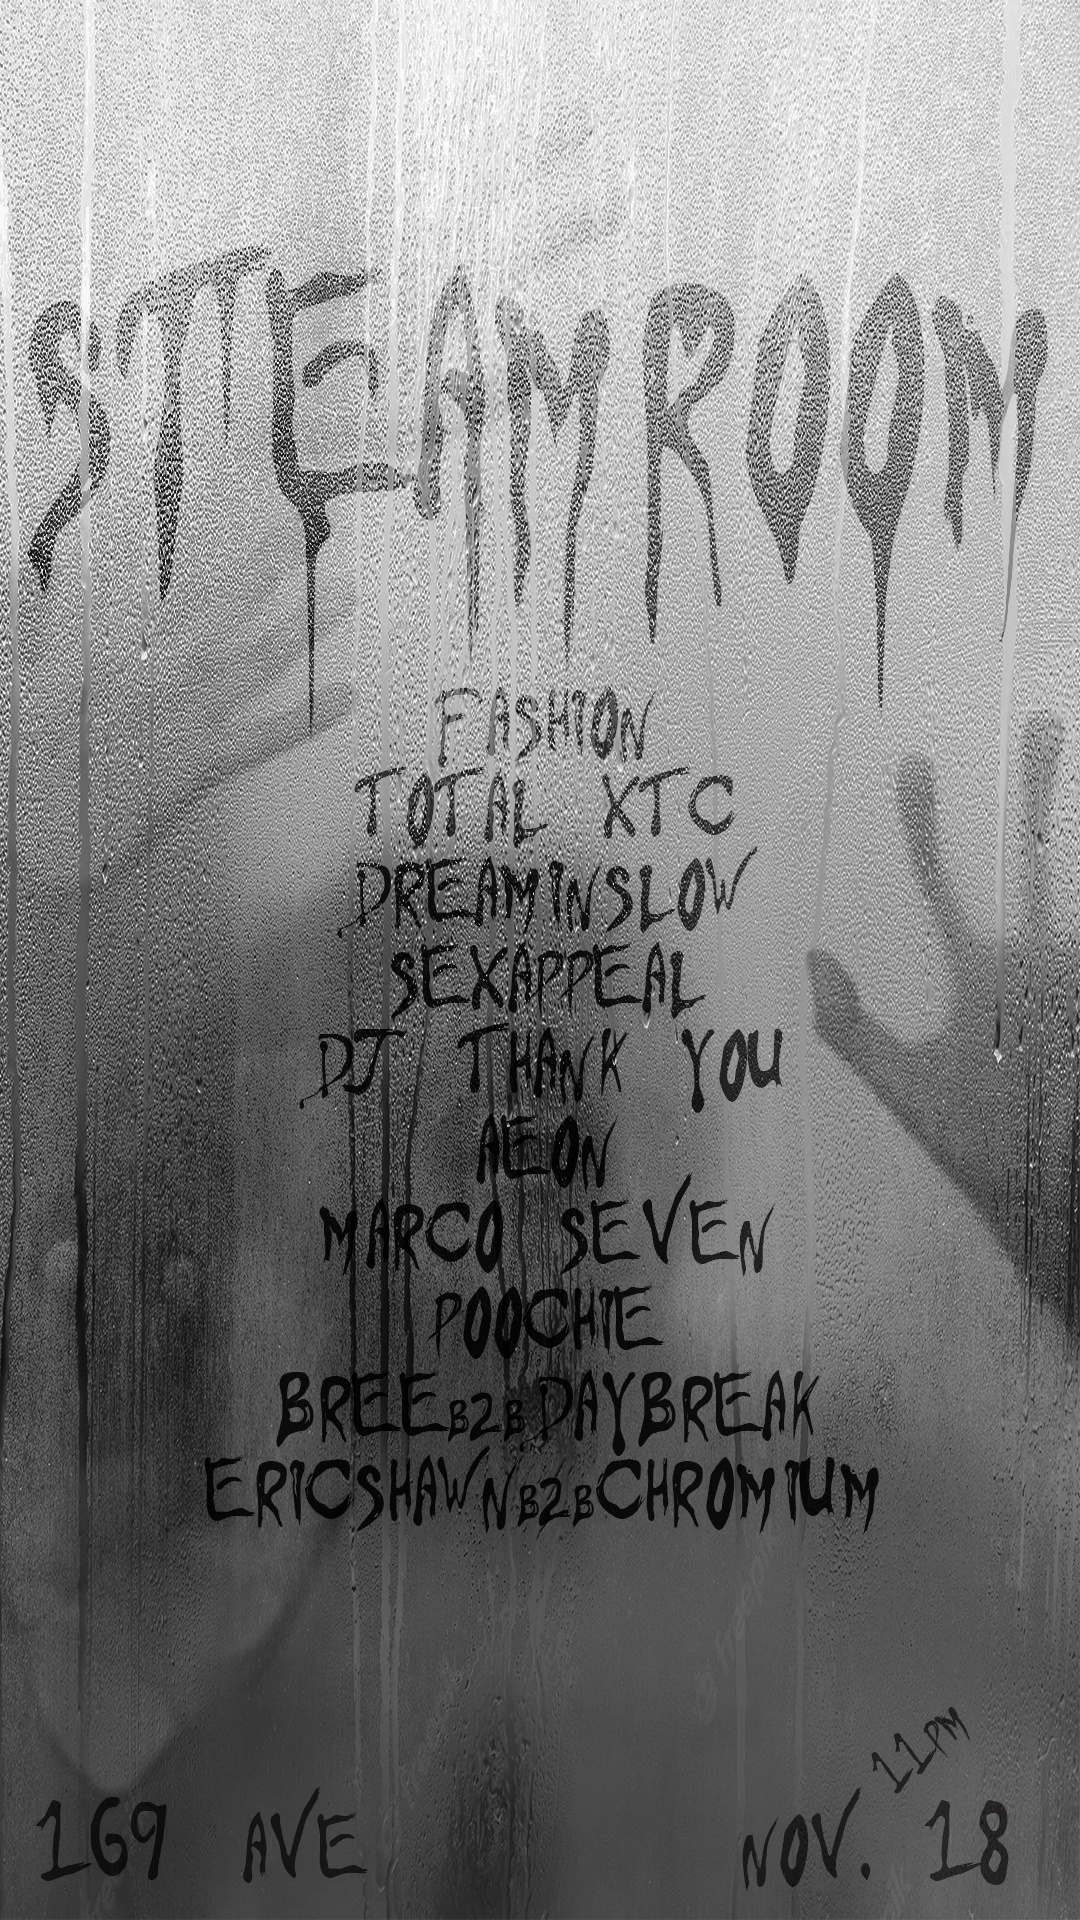 STEAMROOM
FASHION
TOTAL XTC
DREAMINSLOW
SEXAPPEAL
DJ THANK YOU
AEON
MARCO SEVEN
POOCHIE
BREE B2B DAYBREAK
ERICSHAWN B2B CHROMIUM
11PM
169 AVE NOV. 18